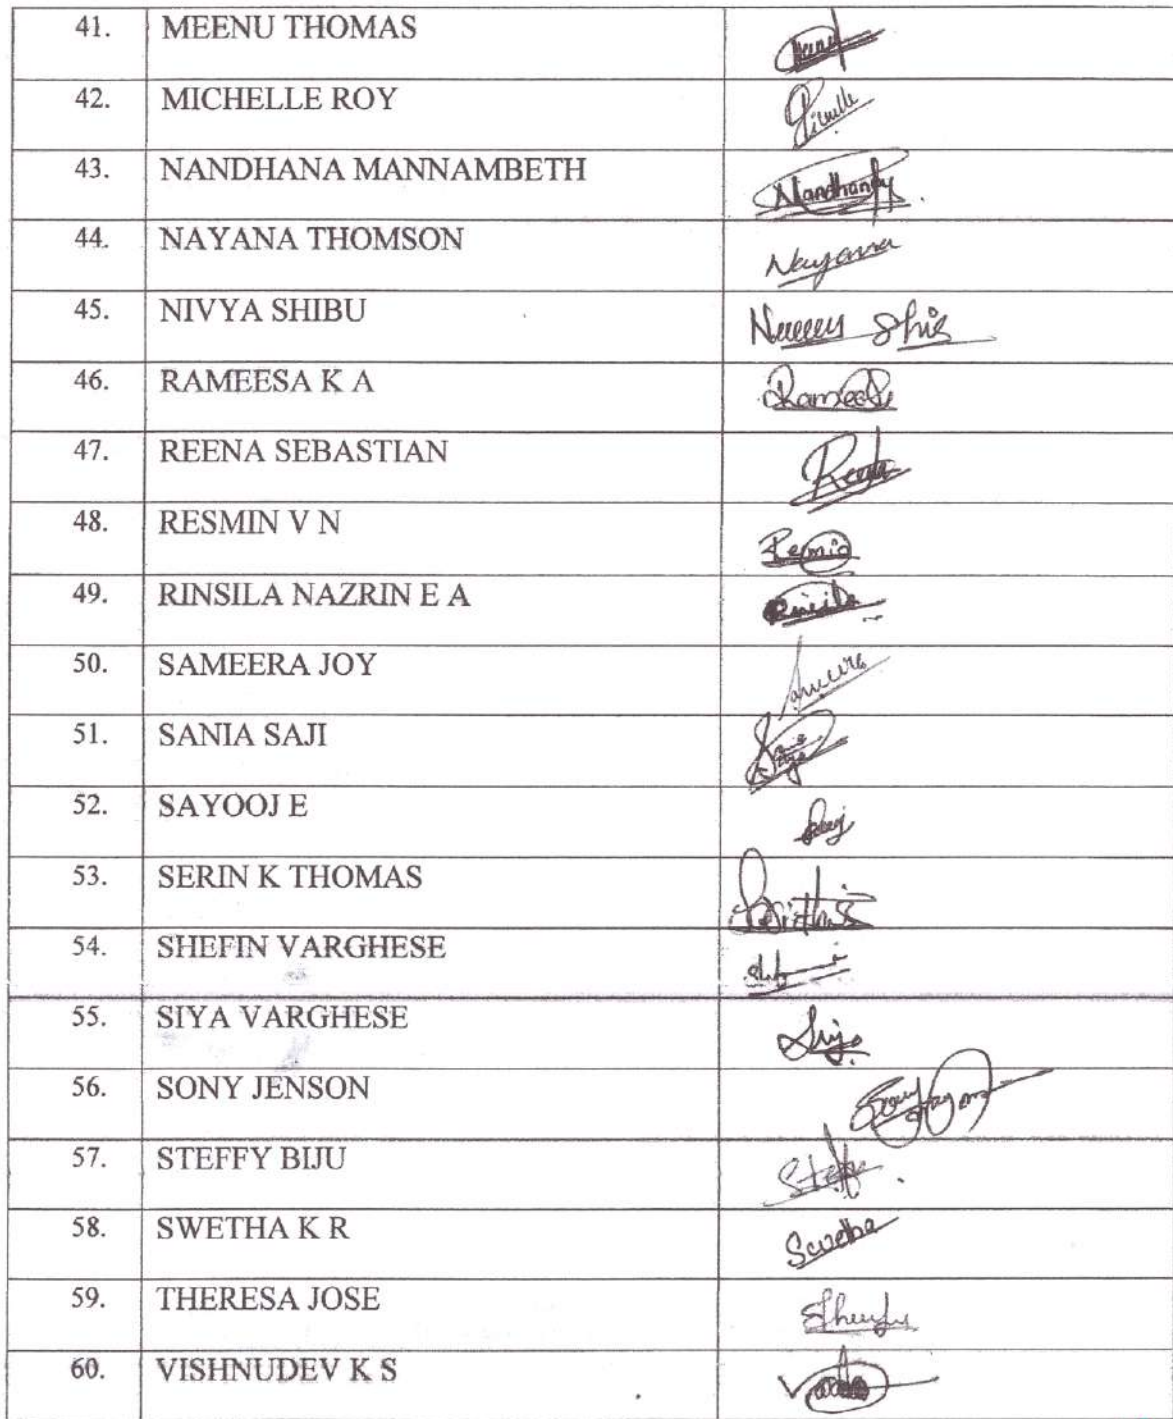 41. MEENU THOMAS
42. MICHELLE ROY
43. NANDHANA MANNAMBETH Nandhana
44. NAYANA THOMSON Nayana
45. NIVYA SHIBU
46. RAMEESA K A
47. REENA SEBASTIAN
48. RESMIN V N
49. RINSILA NAZRIN E A
50. SAMEERA JOY
51. SANIA SAJI
52. SAYOOJ E
53. SERIN K THOMAS
54. SHEFIN VARGHESE
55. SIYA VARGHESE
56. SONY JENSON
57. STEFFY BIJU Steffy
58. SWETHA K R Swetha
59. THERESA JOSE
60. VISHNUDEV K S